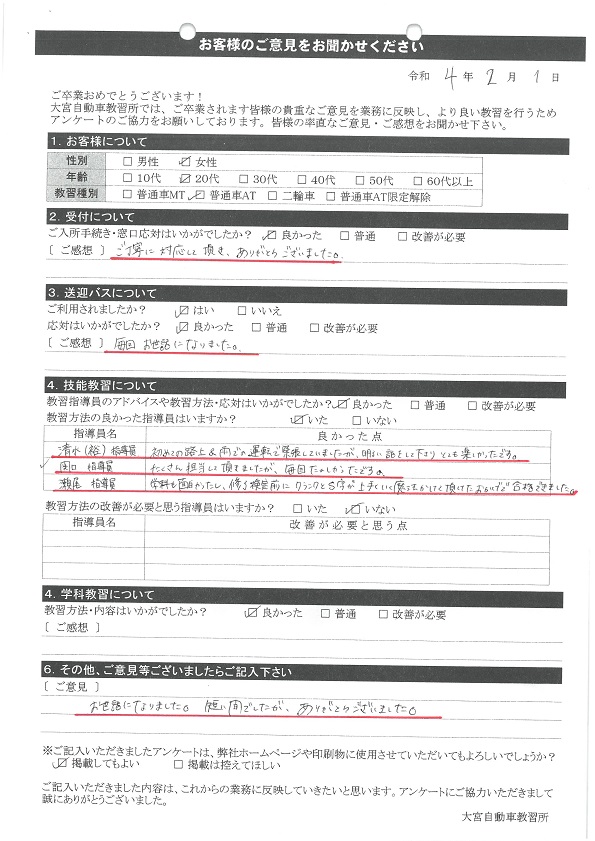 お客様のご意見をお聞かせください
令和 4年 2月 1日
ご卒業おめでとうございます！
大宮自動車教習所では、ご卒業されます皆様の貴重なご意見を業務に反映し、より良い教習を行うため
アンケートのご協力をお願いしております。皆様の率直なご意見・ご感想をお聞かせ下さい。
1. お客様について
性別 □ 男性 ☑ 女性
年齢 □ 10代 ☑ 20代 □ 30代 □ 40代 □ 50代 □ 60代以上
教習種別 □ 普通車MT ☑ 普通車AT □ 二輪車 □ 普通車AT限定解除
2. 受付について
ご入所手続き・窓口応対はいかがでしたか？ ☑ 良かった □ 普通 □ 改善が必要
〔 ご感想 〕 ご丁寧に対応して頂き、ありがとうございました。
3. 送迎バスについて
ご利用されましたか？ ☑ はい □ いいえ
応対はいかがでしたか？ ☑ 良かった □ 普通 □ 改善が必要
〔 ご感想 〕 毎回お世話になりました。
4. 技能教習について
教習指導員のアドバイスや教習方法・応対はいかがでしたか？ ☑ 良かった □ 普通 □ 改善が必要
教習方法の良かった指導員はいますか？ ☑ いた □ いない
指導員名 良かった点
清水(裕) 指導員 初めての路上&雨での運転で緊張していましたが、明るい話をして下さりとても楽しかったです。
指導員 たくさん担当して頂きましたが、毎回たのしかったです。
瀬尾 指導員 学科も面白かったし、修了検定前にクランクとS字が上手くいく魔法をかけて頂けたおかげで合格できました。
教習方法の改善が必要と思う指導員はいますか？ □ いた ☑ いない
指導員名 改善が必要と思う点
4. 学科教習について
教習方法・内容はいかがでしたか？ ☑ 良かった □ 普通 □ 改善が必要
〔 ご感想 〕
6. その他、ご意見等ございましたらご記入下さい
〔 ご意見 〕
お世話になりました。 短い間でしたが、ありがとうございました。
※ご記入いただきましたアンケートは、弊社ホームページや印刷物に使用させていただいてもよろしいでしょうか？
☑ 掲載してもよい □ 掲載は控えてほしい
ご記入いただきました内容は、これからの業務に反映していきたいと思います。アンケートにご協力いただきまして
誠にありがとうございました。
大宮自動車教習所